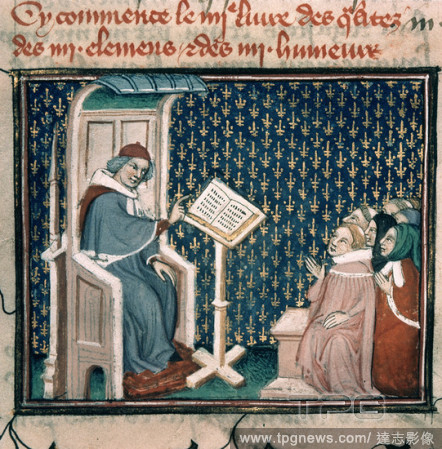 Cy commence le iiiiᵉ liure des q̃litez
des iiii. elemens ⁊ des iiii. humeurs
TPG
www.tpgnews.com/ 達志影像